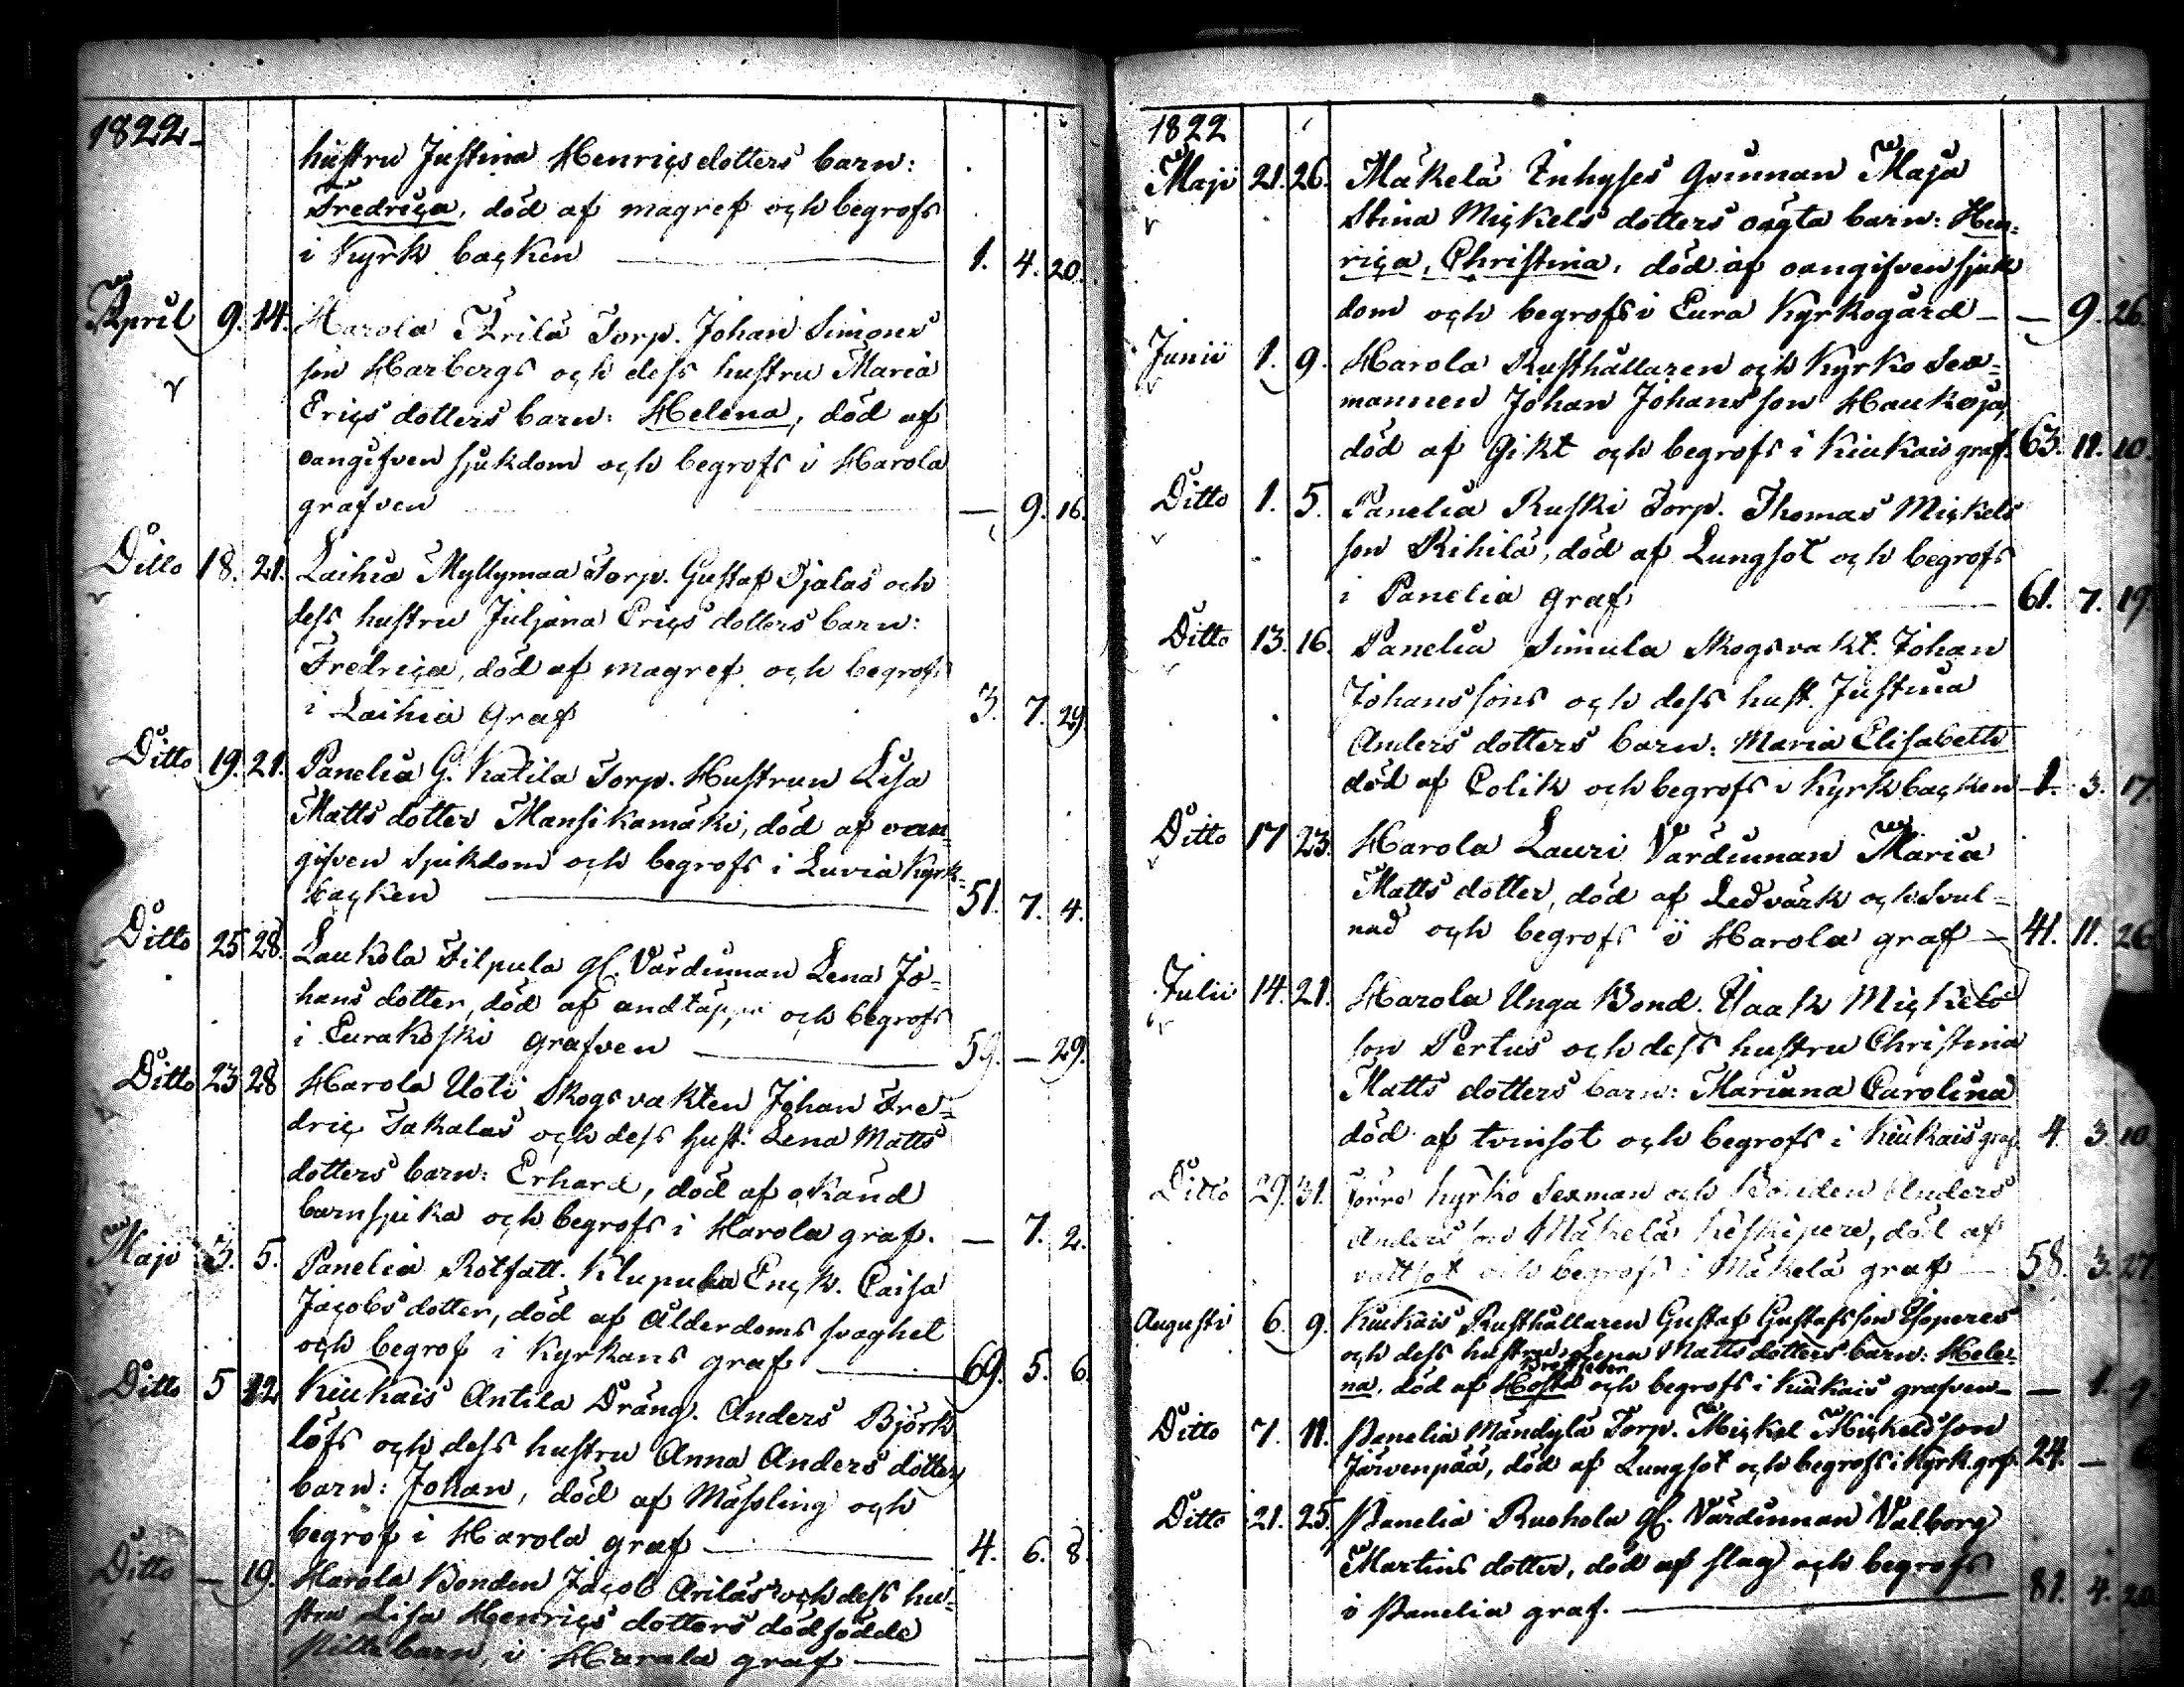 1822
hustru Justina Henriçsdotters barn:
Fredriça, död af magref och begrofs
i Kyrk backen — 1. 4. 20.
April 9. 14. Harola Arila Torp. Johan Simons
son Harbergs och dess hustru Maria
Eriçs dotters barn: Helena, död af
oangifven sjukdom och begrofs i Harola
grafven — 9. 16.
Ditto 18. 21. Laihia Myllymaa Torp. Gustaf Ojalas och
dess hustru Juljana Eriçs dotters barn:
Fredriça, död af magref och begrofs
i Laihia graf 3. 7. 29
Ditto 19. 21. Panelia G. Katila Torp. Hustrun Lisa
Matts dotter Mansikamäki, död af oan-
gifven sjukdom och begrofs i Luvia Kyrk-
backen — 51. 7. 4.
Ditto 25 28. Laukola Filpula gl. Värdinnan Lena Jo-
hans dotter, död af andtäppa och begrofs
i Eurakoski grafven — 59. — 29.
Ditto 23 28 Harola Uoti Skogsvakten Johan Fre-
driç Takalas och dess hust. Lena Matts
dotters barn: Erhard, död af okänd
barnsjuka och begrofs i Harola graf. — 7. 2.
Maji 3. 5. Panelia Rotfatt. Klupula Enck. Caisa
Jacobs dotter, död af Ålderdoms svaghet
och begrof i Kyrkans graf — 69. 5. 6
Ditto 5 12 Kiukais Antila Dräng. Anders Björk
löfs och dess hustru Anna Anders dotters
barn: Johan, död af Mässling och
begrof i Harola graf — 4. 6. 8.
Ditto — 19. Harola Bonden Jacob Arilas och dess hu-
stru Lisa Henriçs dotters dödfödde
barn, i Harola graf —
1822
Maji 21. 26. Mäkelä Inhyses Qvinnan Maja
Stina Mickels dotters oägta barn: Hen-
riça, Christina, död af oangifven sjuk
dom och begrofs i Eura Kyrkogård — — 9. 26.
Junii 1. 9. Harola Rusthållaren och Kyrko Sex-
mannen Johan Johansson Haukoja,
död af Gikt och begrofs i Kiukais graf. 63. 11. 10.
Ditto 1. 5. Panelia Ruski Torp. Thomas Mickels
son Rihilä, död af Lungsot och begrofs
i Panelia graf — 61. 7. 19.
Ditto 13. 16. Panelia Simula Skogsvakt. Johan
Johanssons och dess hust. Justina
Anders dotters barn: Maria Elisabeth
död af Colik och begrofs i Kyrkbacken 1. 3. 17.
Ditto 17 23. Harola Lauri Värdinnan Maria
Matts dotter, död af Ledvärk och Svul-
nad och begrofs i Harola graf — 41. 11. 26
Julii 14. 21. Harola Unga Bond. Isaak Mickels
son Pertus och dess hustru Christina
Matts dotters barn: Mariana Carolina
död af tvinsot och begrofs i Kiukais graf 4. 3. 10
Ditto 29. 31. Förre Kyrko Sexman och Bonden Anders
Andersson Mäkelä Keskipere, död af
vattsot och begrofs i Mäkelä graf — 58. 3. 27.
Augusti 6. 9. Kiukais Rusthållaren Gustaf Gustafsson Esoperes
och dess hustru Lena Matts dotters barn: Hele-
na, död af Hosta och begrofs i Kiukais grafven — — 1. 9.
Ditto 7. 11. Panelia Mandylä Torp. Mickel Mickelsson
Järvenpää, död af Lungsot och begrofs i Kyrk. grf. 24. —
Ditto 21. 25. Panelia Ruohola gl. Värdinnan Valborg
Martins dotter, död af slag och begrofs
i Panelia graf. — 81. 4. 20